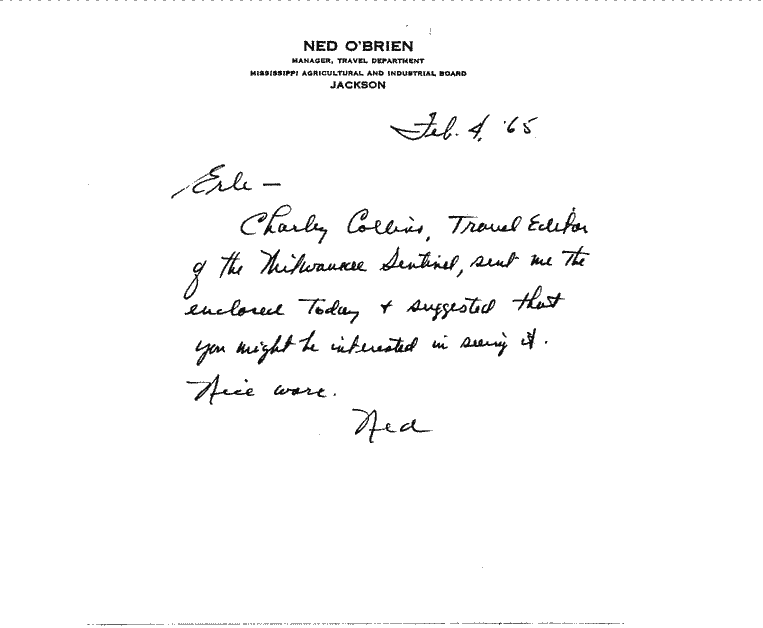 NED O'BRIEN
MANAGER, TRAVEL DEPARTMENT
MISSISSIPPI AGRICULTURAL AND INDUSTRIAL BOARD
JACKSON
Feb. 4, '65
Erle –
Charley Collins, Travel Editor
of the Milwaukee Sentinel, sent me the
enclosed today + suggested that
you might be interested in seeing it.
Nice work.
Ned